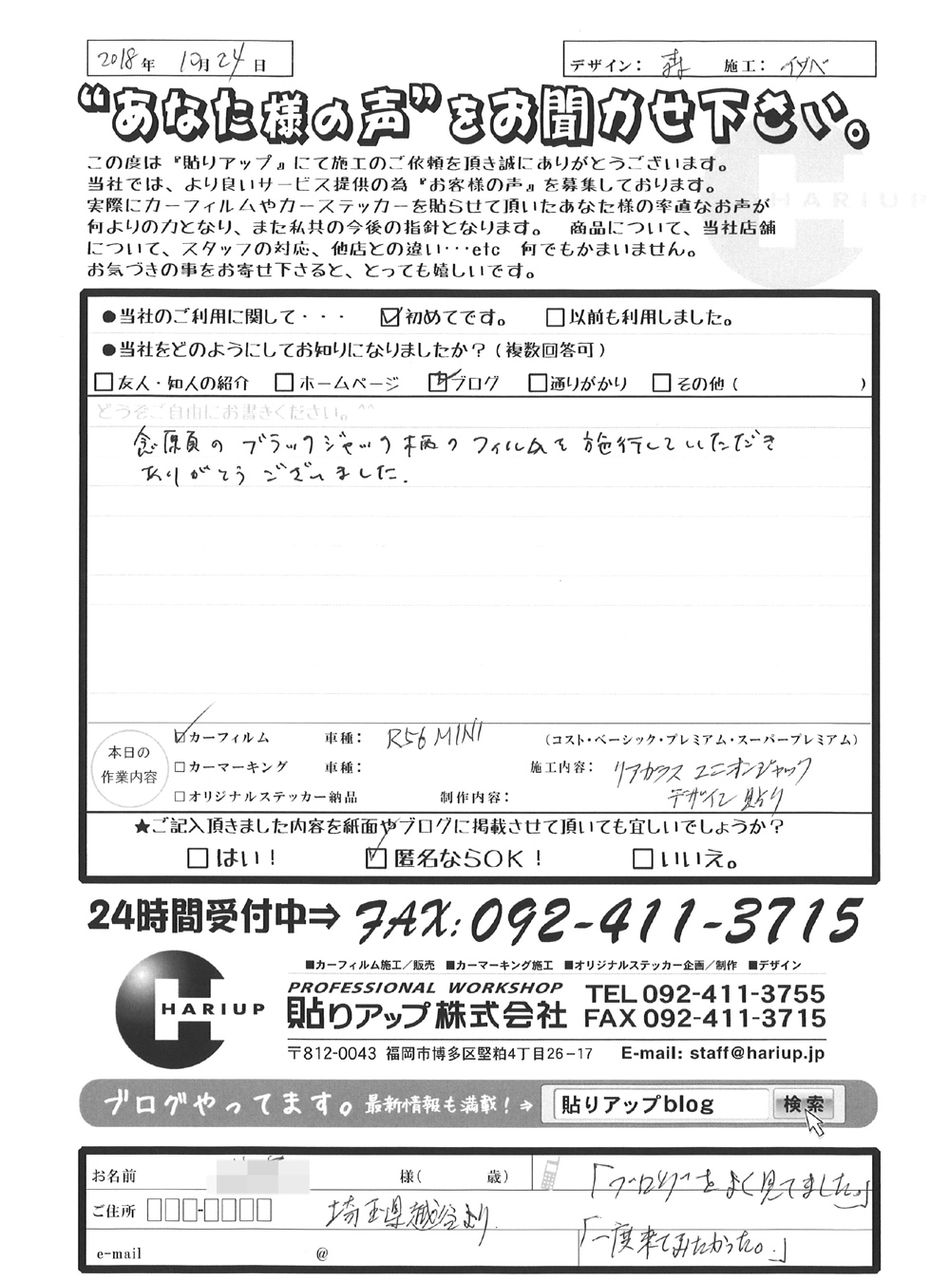 2018年 10月24日 デザイン: 森 施工: イソベ
“あなた様の声”をお聞かせ下さい。
この度は『貼りアップ』にて施工のご依頼を頂き誠にありがとうございます。
当社では、より良いサービス提供の為『お客様の声』を募集しております。
実際にカーフィルムやカーステッカーを貼らせて頂いたあなた様の率直なお声が
何よりの力となり、また私共の今後の指針となります。 商品について、当社店舗
について、スタッフの対応、他店との違い・・・etc 何でもかまいません。
お気づきの事をお寄せ下さると、とっても嬉しいです。
HARIUP
●当社のご利用に関して・・・ ☑初めてです。 □以前も利用しました。
●当社をどのようにしてお知りになりましたか?(複数回答可)
□友人・知人の紹介 □ホームページ ☑ブログ □通りがかり □その他( )
どうぞご自由にお書きください。^^
念願の ブラックジャック柄の フィルムを 施行していただき
ありがとう ございました.
本日の
作業内容
☑カーフィルム 車種: R56 MINI (コスト・ベーシック・プレミアム・スーパープレミアム)
□カーマーキング 車種: 施工内容: リアガラス ユニオンジャック
デザイン貼り
□オリジナルステッカー納品 制作内容:
★ご記入頂きました内容を紙面やブログに掲載させて頂いても宜しいでしょうか?
□はい! ☑匿名ならOK! □いいえ。
24時間受付中⇒ FAX:092-411-3715
■カーフィルム施工/販売 ■カーマーキング施工 ■オリジナルステッカー企画/制作 ■デザイン
HARIUP
PROFESSIONAL WORKSHOP
貼りアップ株式会社
TEL 092-411-3755
FAX 092-411-3715
〒812-0043 福岡市博多区堅粕4丁目26-17 E-mail: staff@hariup.jp
ブログやってます。最新情報も満載!⇒ 貼りアップblog 検索
お名前 様( 歳) 「ブログをよく見てました。」
ご住所 □□□-□□□□ 埼玉県越谷より
「一度来てみたかった。」
e-mail @